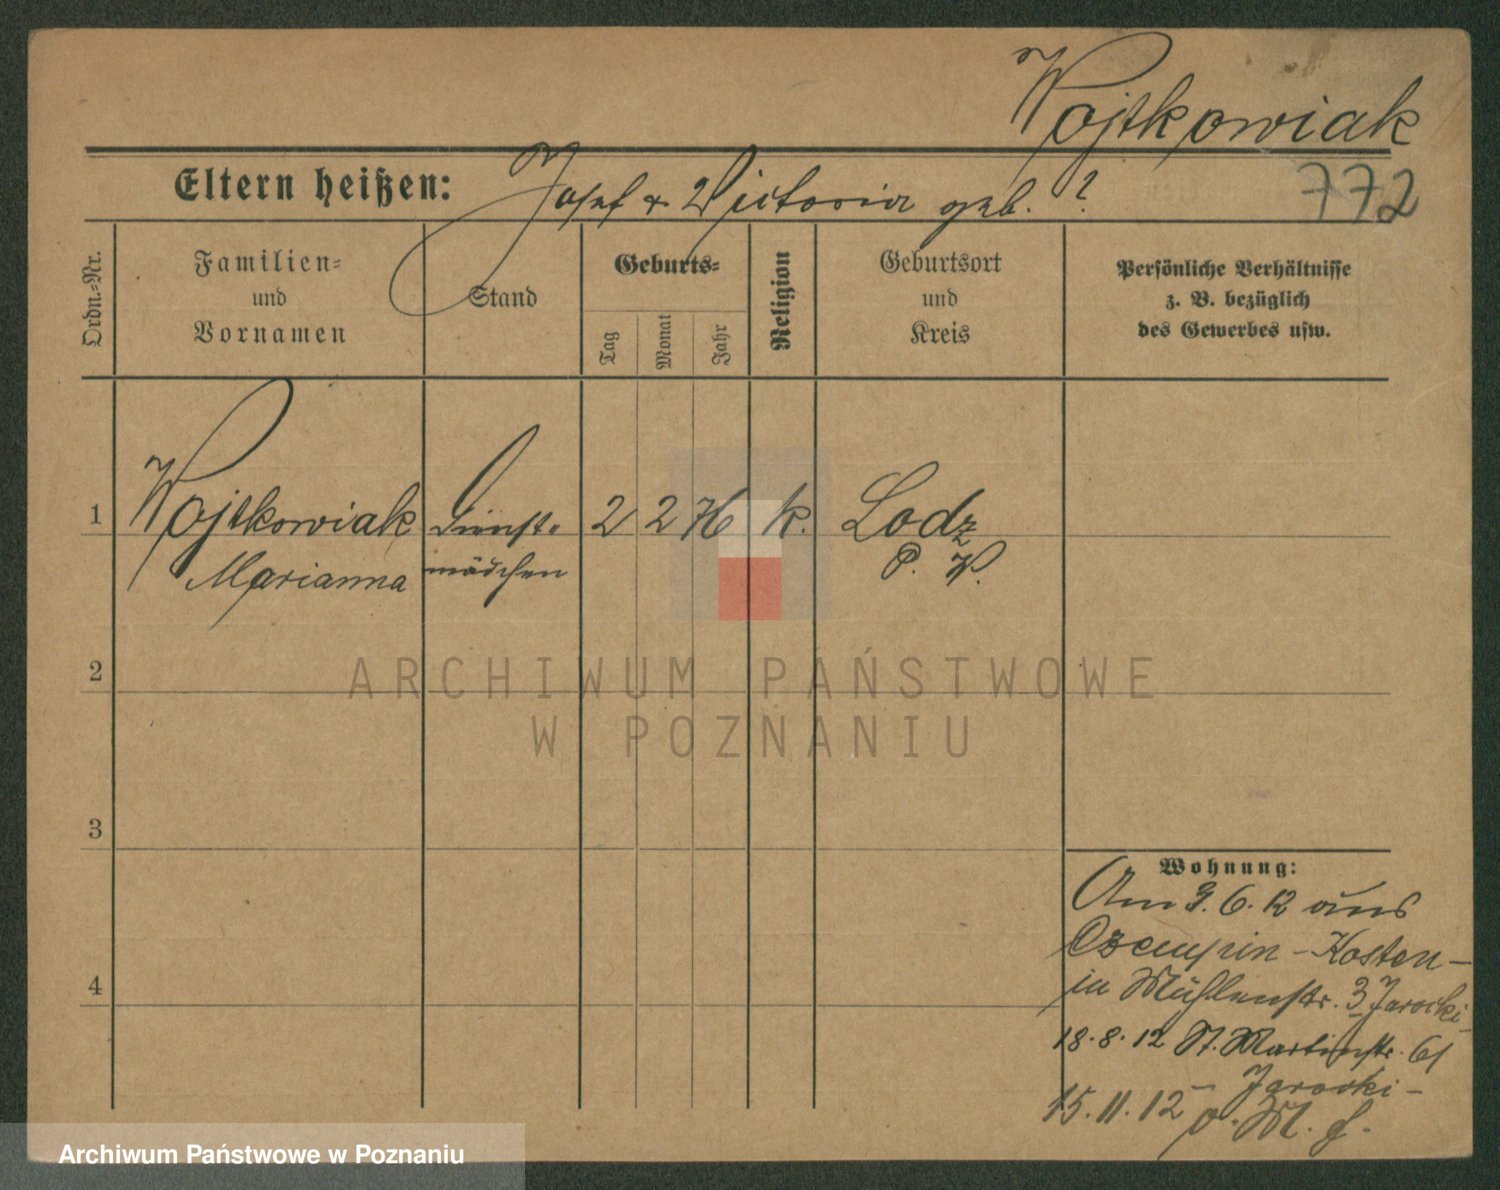 Wojtkowiak
Eltern heißen: Josef & Victoria geb. ?
772
Ordn.=Nr.
Familien=
und
Vornamen
Stand
Geburts=
Tag
Monat
Jahr
Religion
Geburtsort
und
Kreis
Persönliche Verhältnisse
z. B. bezüglich
des Gewerbes usw.
1 Wojtkowiak Dienst= 2 2 76 k. Lodz
Marianna mädchen P. P.
2
ARCHIWUM PAŃSTWOWE
W POZNANIU
3
4
Wohnung:
Am 3. 6. 12 aus
Czempin - Kosten -
in Mühlenstr. 3 Jarocki -
18. 8. 12 St. Martinstr. 61
Jarocki -
15. 11. 12
Archiwum Państwowe w Poznaniu